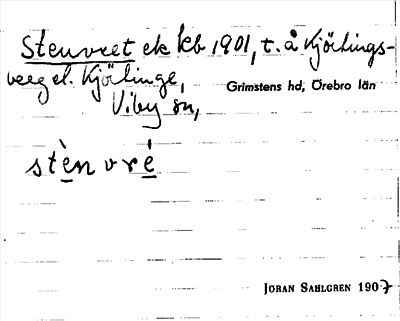 Stenvret ek kb 1901, t. å Kjörlings-
verg el. Kjörlinge,
Grimstens hd, Örebro län
Viby sn,
stènvré
JÖRAN SAHLGREN 1907